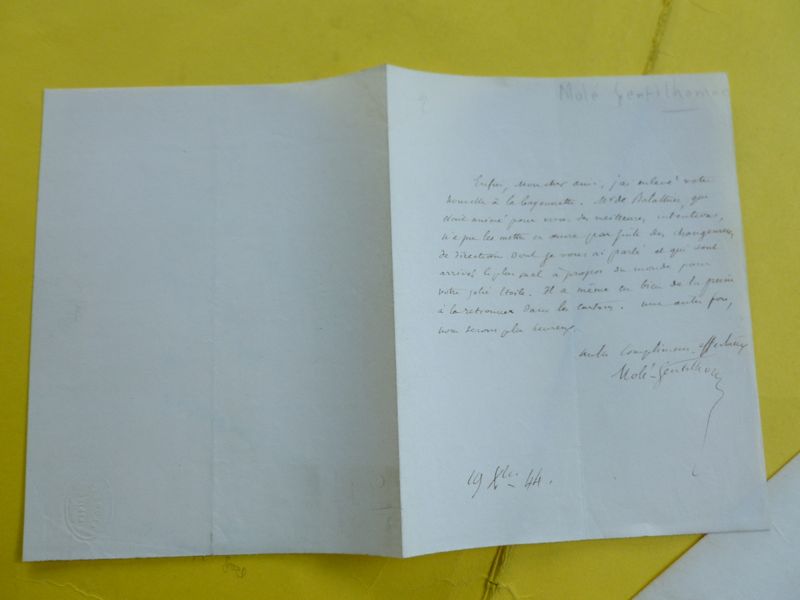 Molé Gentilhomme
Enfin, mon cher ami, j'ai enlevé votre
nouvelle à la bayonnette. Mr de Balathier, qui
était animé pour vous des meilleures intentions,
n'a pu les mettre en œuvre par suite des changemens
de direction dont je vous ai parlé et qui sont
arrivés le plus mal à propos du monde pour
votre jolie Etoile. Il a même eu bien de la peine
à la retrouver dans les cartons. une autre fois,
nous serons plus heureux
mille complimens affectueux
Molé-Gentilhomme
19 Xbre 44.